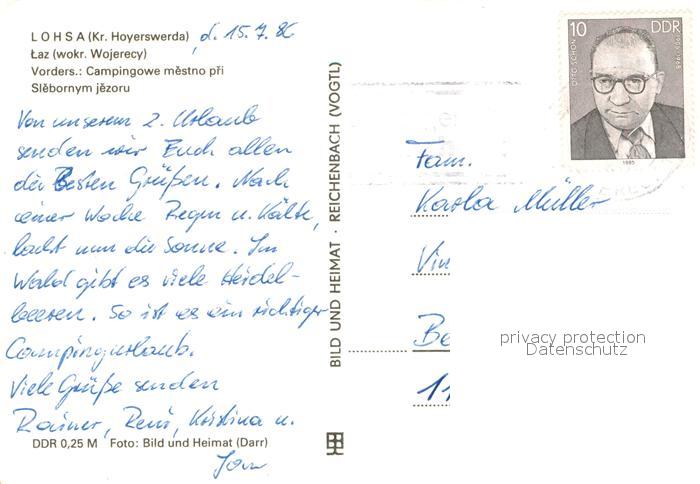 L O H S A (Kr. Hoyerswerda) d. 15.7.86
Łaz (wokr. Wojerecy)
Vorders.: Campingowe městno při
Slěbornym jězoru
Von unserem 2. Urlaub
senden wir Euch allen
die Besten Grüßen. Nach
einer Woche Regen u. Kälte,
lacht nun die Sonne. Im
Wald gibt es viele Heidel-
beeren. So ist es ein richtiger
Campingurlaub.
Viele Grüße senden
Rainer, René, Kristina u.
DDR 0,25 M Foto: Bild und Heimat (Darr)
BILD UND HEIMAT · REICHENBACH (VOGTL)
10 DDR
OTTO SCHÖN
1905-1968
1985
Fam.
Karla Müller
Vin
Be
11
privacy protection
Datenschutz